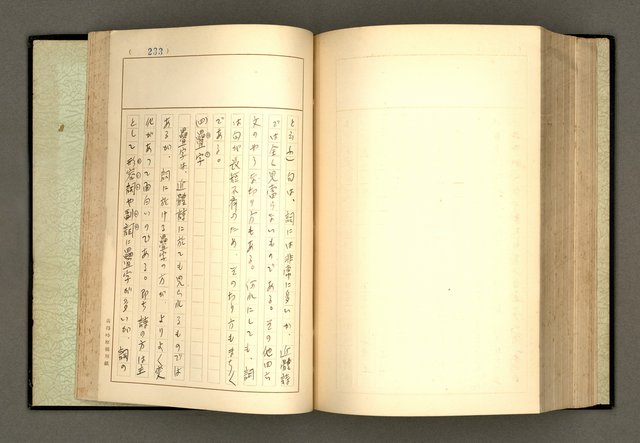 ( 233 )
と云ふ)句は、詞には非常に多いが、近體詩
では全く見當らないものである。その他四六
文のやうな切り方もある。何れにしても、詞
は句が長短不齊のため、その切り方もまちまち
である。
(四)疊字
疊字は、近體詩に於ても見られるものでは
あるが、詞に於ける疊字の方が、よりよく變
化があつて面白いのである。即ち詩の方は主
として形容詞や副詞に疊字が多いが、詞の